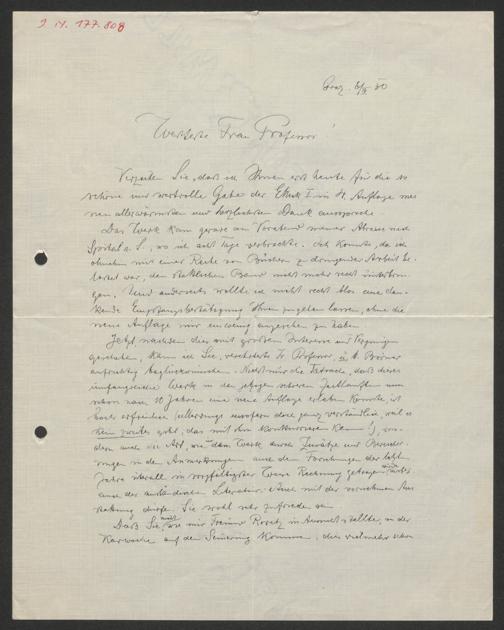 J. N. 177.808
Graz, 6/V 30
Werteste Frau Professor!
Verzeihen Sie, daß ich Ihnen erst heute für die so
schöne und wertvolle Gabe der Ethik I in 4. Auflage mei-
nen allerwärmsten und herzlichsten Dank ausspreche.
Das Werk kam gerade am Vorabend meiner Abreise nach
Spital a. S., wo ich acht Tage verbrachte. Ich konnte, da ich
ohnehin mit einer Reihe von Büchern zu dringender Arbeit be-
lastet war, den stattlichen Band nicht mehr recht unterbrin-
gen. Und anderseits wollte ich nicht recht blos eine dan-
kende Empfangsbestätigung Ihnen zugehen lassen, ohne die
neue Auflage mir ein wenig angesehen zu haben.
Jetzt, nachdem dies mit großem Interesse und Vergnügen
geschehen, kann ich Sie, verehrteste Fr. Professor, u. H. Börner
aufrichtig beglückwünschen. Nicht nur die Tatsache, daß dieses
umfangreiche Werk in den jetzigen schweren Zeitläuften nun
schon nach 10 Jahren eine neue Auflage erleben konnte, ist
hocherfreulich (allerdings insofern doch ganz verständlich, weil es
kein zweites gibt, das mit ihm konkurrieren kann!), son-
dern auch die Art, wie dem Werk durch Zusätze und
in den Anmerkungen auch den Forschungen der letzten
Jahre überall in sorgfältigster Weise Rechnung getragen
auch der ausländischen Literatur. Auch mit der vornehmen Aus-
stattung dürfen Sie wohl sehr zufrieden sein.
Daß Sie, wie mir Freund in Aussicht stellte, in der
Karwoche auf den Semmering kommen, dies vielmehr